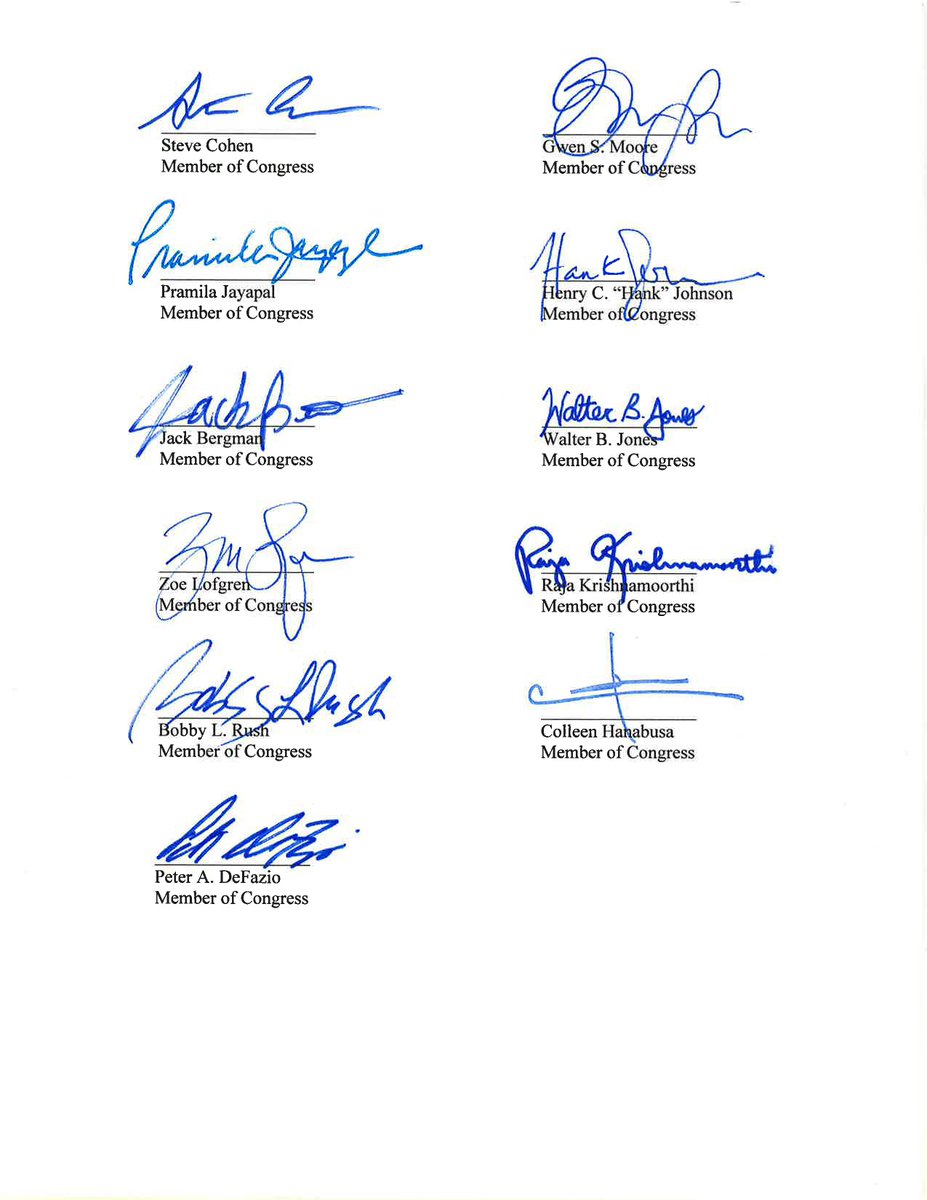 Steve Cohen
Member of Congress
Gwen S. Moore
Member of Congress
Pramila Jayapal
Pramila Jayapal
Member of Congress
Hank
Henry C. “Hank” Johnson
Member of Congress
Jack
Jack Bergman
Member of Congress
Walter B. Jones
Walter B. Jones
Member of Congress
Zoe Lofgren
Member of Congress
Raja Krishnamoorthi
Raja Krishnamoorthi
Member of Congress
Bobby L Rush
Bobby L. Rush
Member of Congress
Colleen Hanabusa
Member of Congress
Peter A. DeFazio
Member of Congress